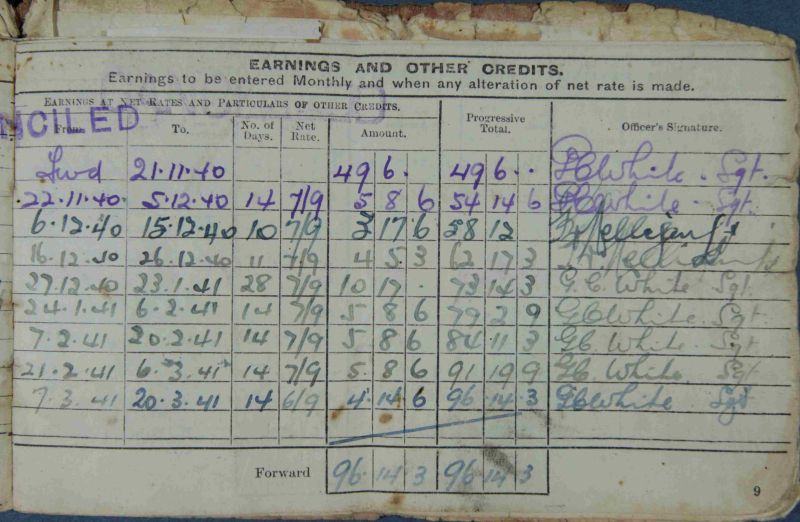 EARNINGS AND OTHER CREDITS.
Earnings to be entered Monthly and when any alteration of net rate is made.
EARNINGS AT NET RATES AND PARTICULARS OF OTHER CREDITS.
NCILED
From. To. No. of Days. Net Rate. Amount. Progressive Total. Officer's Signature.
Fwd 21.11.40 49 6 . 49 6 . . White . Sgt.
22.11.40. 5.12.40 14 7/9 5 8 6 54 14 6 White . Sgt.
6.12.40 15.12.40 10 7/9 3 17 6 58 12
16.12.40 26.12.40 11 7/9 4 5 3 62 17 3
27.12.40 23.1.41 28 7/9 10 17 . 73 14 3 G. C. White Sgt.
24.1.41 6.2.41 14 7/9 5 8 6 79 2 9 GC White . Sgt.
7.2.41 20.2.41 14 7/9 5 8 6 84 11 3 GC. White . Sgt
21.2.41 6.3.41 14 7/9 5 8 6 91 19 9 GC White. Sgt
7.3.41 20.3.41 14 6/9 4.14 6 96.14.3 GC White Sgt
Forward 96. 14 3 96 14 3
9